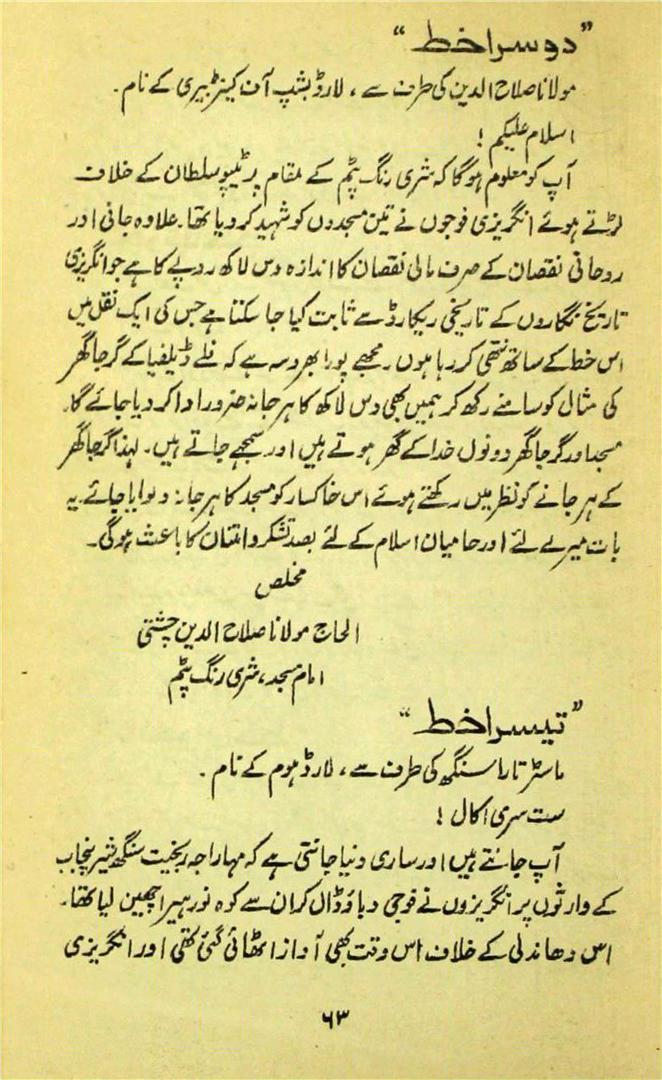 ”دوسرا خط“
مولانا صلاح الدین کی طرف سے، لارڈ بشپ آف کینٹربیری کے نام۔
اسلام علیکم!
آپ کو معلوم ہوگا کہ شری رنگ پٹم کے مقام پر ٹیپو سلطان کے خلاف
لڑتے ہوئے انگریزی فوجوں نے تین مسجدوں کو شہید کر دیا تھا۔ علاوہ جانی اور
روحانی نقصان کے صرف مالی نقصان کا اندازہ دس لاکھ روپے کا ہے جو انگریزی
تاریخ نگاروں کے تاریخی ریکارڈ سے ثابت کیا جا سکتا ہے جس کی ایک نقل میں
اس خط کے ساتھ نتھی کر رہا ہوں۔ مجھے پورا بھروسہ ہے کہ فلے ڈیلفیا کے گرجا گھر
کی مثال کو سامنے رکھ کر ہمیں بھی دس لاکھ کا ہرجانہ ضرور ادا کر دیا جائے گا۔
مسجد اور گرجا گھر دونوں خدا کے گھر ہوتے ہیں اور سمجھے جاتے ہیں۔ لہذا گرجا گھر
کے ہرجانے کو نظر میں رکھتے ہوئے اس خاکسار کو مسجد کا ہرجانہ دلوایا جائے۔ یہ
بات میرے لئے اور حامیان اسلام کے لئے بصد تشکر و امتنان کا باعث ہوگی۔
مخلص
الحاج مولانا صلاح الدین چشتی
امام مسجد، شری رنگ پٹم
”تیسرا خط“
ماسٹر تارا سنگھ کی طرف سے، لارڈ ہوم کے نام۔
ست سری اکال!
آپ جانتے ہیں اور ساری دنیا جانتی ہے کہ مہاراجہ رنجیت سنگھ شیر پنجاب
کے وارثوں پر انگریزوں نے فوجی دباؤ ڈال کر ان سے کوہ نور ہیرا چھین لیا تھا۔
اس دھاندلی کے خلاف اس وقت بھی آواز اٹھائی گئی تھی اور انگریزی
۶۳